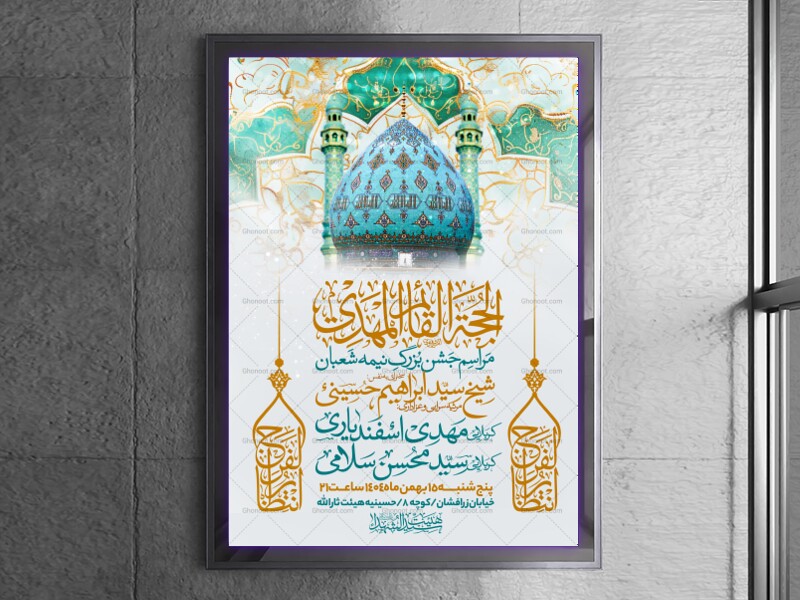 الحجة القائم المهدی
مراسم جشن بزرگ نیمه شعبان
شیخ سید ابراهیم حسینی
کربلایی مهدی اسفندیاری
کربلایی سید محسن سلامی
پنج شنبه ۱۵ بهمن ماه ۱۴۰۴ ساعت ۲۱
خیابان زرافشان / کوچه ۸ / حسینیه هیئت ثارالله
انتظار الفرج
انتظار الفرج
Ghonoot.com